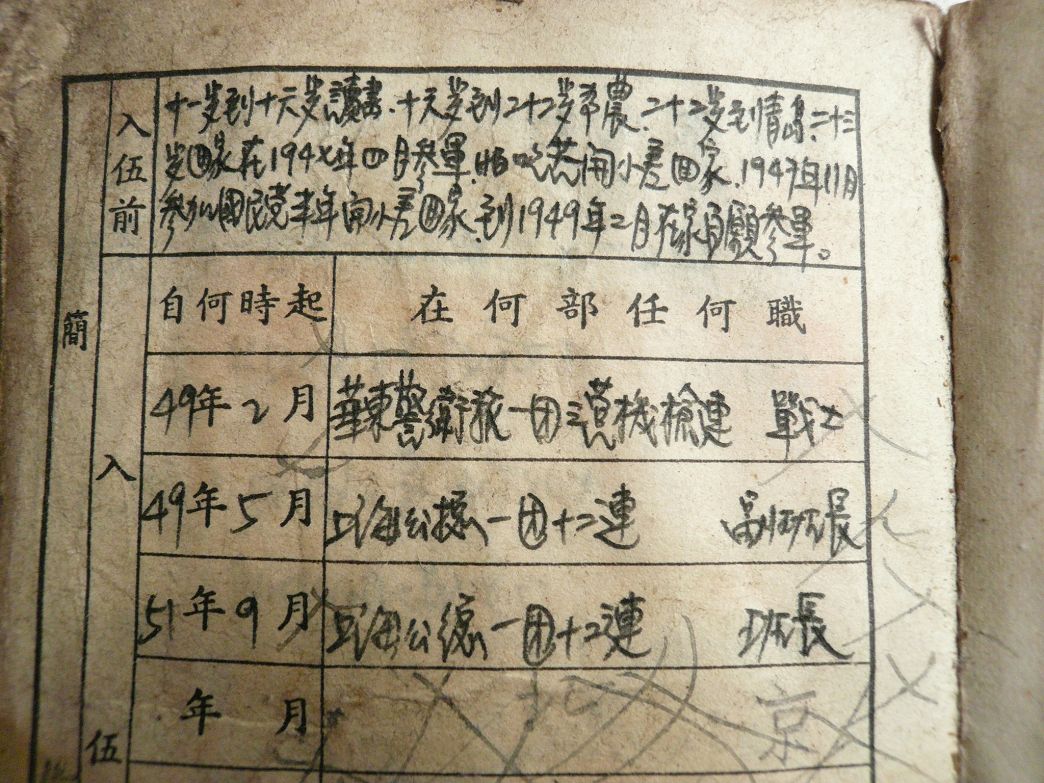 入伍前
十一岁到十六岁讀書.十六岁到二十二岁帮農.二十二岁到情島.二十三
岁回家在1947年四月参軍.怕吃苦開小差回家.1947年11月
参加國民党半年開小差回家.到1949年二月在家自願参軍。
簡
入
伍
自何時起 在何部任何職
49年2月 華東警衛旅一团三营機槍連 戰士
49年5月 上海公摠一团十二連 副班長
51年9月 上海公總一团十二連 班長
年 月
京